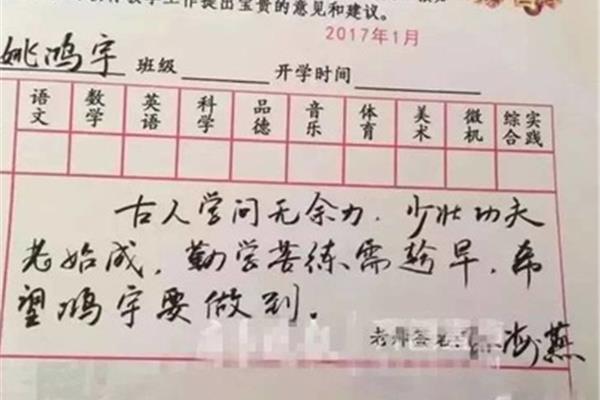 教学工作提出宝贵的意见和建议。
2017年1月
姚鸿宇 班级 开学时间
语文 数学 英语 科学 品德 音乐 体育 美术 微机 综合实践
古人学问无余力，少壮功夫
老始成，勤学苦练需趁早，希
望鸿宇要做到。
老师签名： 燕